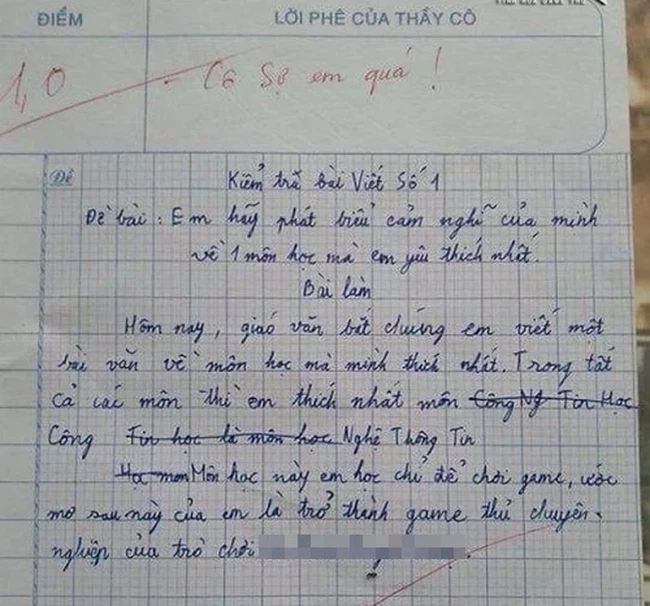 ĐIỂM
LỜI PHÊ CỦA THẦY CÔ
1,0
- Cô sợ em quá !
Đề
Kiểm trã Bài Viết Số 1
Đề bài : Em hãy phát biểu cảm nghĩ của mình
về 1 môn học mà em yêu thích nhất.
Bài làm
Hôm nay, giáo văn bắt chúng em viết một
bài văn về môn học mà mình thích nhất. Trong tất
cả các môn thì em thích nhất môn Công Ng Tin Học
Công Tin học là môn học Nghệ Thông Tin
Học môn Môn học này em học chỉ để chơi game, ước
mơ sau này của em là trở thành game thủ chuyên
nghiệp của trò chơi